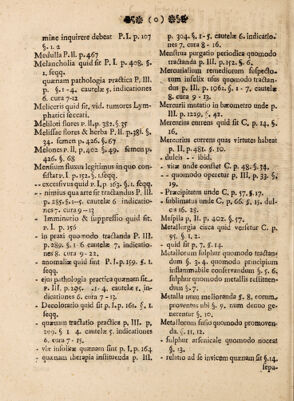 ( o )
mine inquirere debeat P. I. p. 107
§. 1. 2
Medulla P. II. p. 467
Melancholia quid sit P. I. p. 408. §.
1. seqq.
- quænam pathologia practica P. III.
p. §. 1 - 4. cautelæ 5. indicationes
6. cura 7-12
Meliceris quid sit, vid. tumores Lym-
phatici siccati.
Meliloti flores P. II. p. 382. §. 35
Melissæ flores & herba P. II. p. 381. §.
34. semen p. 426. §. 67
Melones P. II. p. 402 §. 49. semen p.
426. §. 68
Mensium fluxus legitimus in quo con-
sistat P. I. p. 152. §. 1. seqq.
-- excessivus quid P. I. p. 163. §. 1. seqq.
-- nimius qua arte sit tractandus P. III.
p. 285. §. 1-5. cautelæ 6 indicatio-
nes 7. cura 9-13
- Imminutio & suppressio quid sit.
P. I. p. 156
- in praxi quomodo tractanda P. III.
p. 289. §. 1 - 6 cautelæ 7. indicatio-
nes 8 cura 9 - 22.
- anomaliæ quid sint P. I. p. 159. §. 1.
seqq.
- ejus pathologia practica quænam sit.
P. III. p. 295. §. 1-4. cautelæ 5. in-
dicationes 6. cura 7-12.
- Decoloratio quid sit P. I. p. 161. §. 1.
seqq.
- quænam tractatio practica P. III. p.
209. §. 1 4. cautelæ 5. indicationes
6. cura 7 - 15.
- viæ insolitæ quænam sint P. I. p. 164
- quænam therapia instituenda P. III.
p. 304. §. 1 - 5. cautelæ 6. indicatio-
nes 7. cura 8 - 16.
Menstrua purgatio periodica quomodo
tractanda P. III. p. 152. §. 6.
Mercurialium remediorum suspecto-
rum infelix usus quomodo tractan-
dus P. III. p. 1062. §. 1 - 7. cautelæ
8. cura 9 - 13.
Mercurii mutatio in barometro unde P.
III. p. 1229. §. 42.
Mercurius currens quid sit C. p. 14. §.
16.
Mercurius currens quas virtutes habeat
P. II. p. 481. §. 10.
- dulcis - - ibid.
- vitæ unde constet C. p. 48. §. 38.
- - quomodo operetur P. III. p. 33. §.
19.
- Præcipitatus unde C. p. 57. §. 17.
- sublimatus unde C. p. 66. §. 15. dul-
cis 16. 25.
Mespila P. II. p. 402. §. 57.
Metallurgia circa quid versetur C. p.
95. §. 1. 2.
- quid sit p. 7. §. 14.
Metallorum sulphur quomodo tractan-
dum §. 3-4. quomodo principium
inflammabile conservandum §. 5. 6.
sulphur quomodo metallis restituen-
dum §. 7.
Metalla unum melioranda §. 8. comm.
provectus ubi §. 9. num denuo ge-
nerentur §. 10.
Metallorum fusio quomodo promoven-
da. §. 11. 12.
- sulphur arsenicale quomodo noceat
§. 13.
- relatio ad se invicem quænam sit §. 14.
sepa-